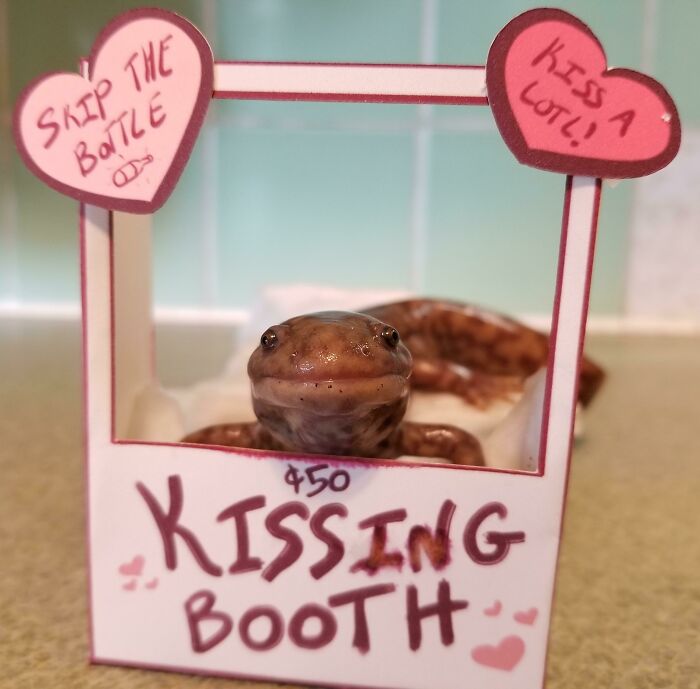 SKIP THE
BOTTLE
KISS A
LOTL!
¢50
KISSING
BOOTH